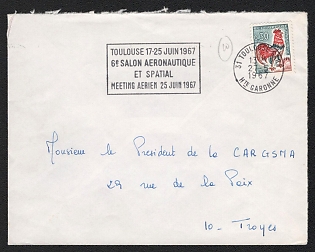 TOULOUSE 17-25 JUIN 1967
6e SALON AERONAUTIQUE
ET SPATIAL
MEETING AERIEN 25 JUIN 1967
31 TOULOUSE
1967
Hte GARONNE
Monsieur le President de la CARGSMA
29 rue de la Paix
10 - Troyes